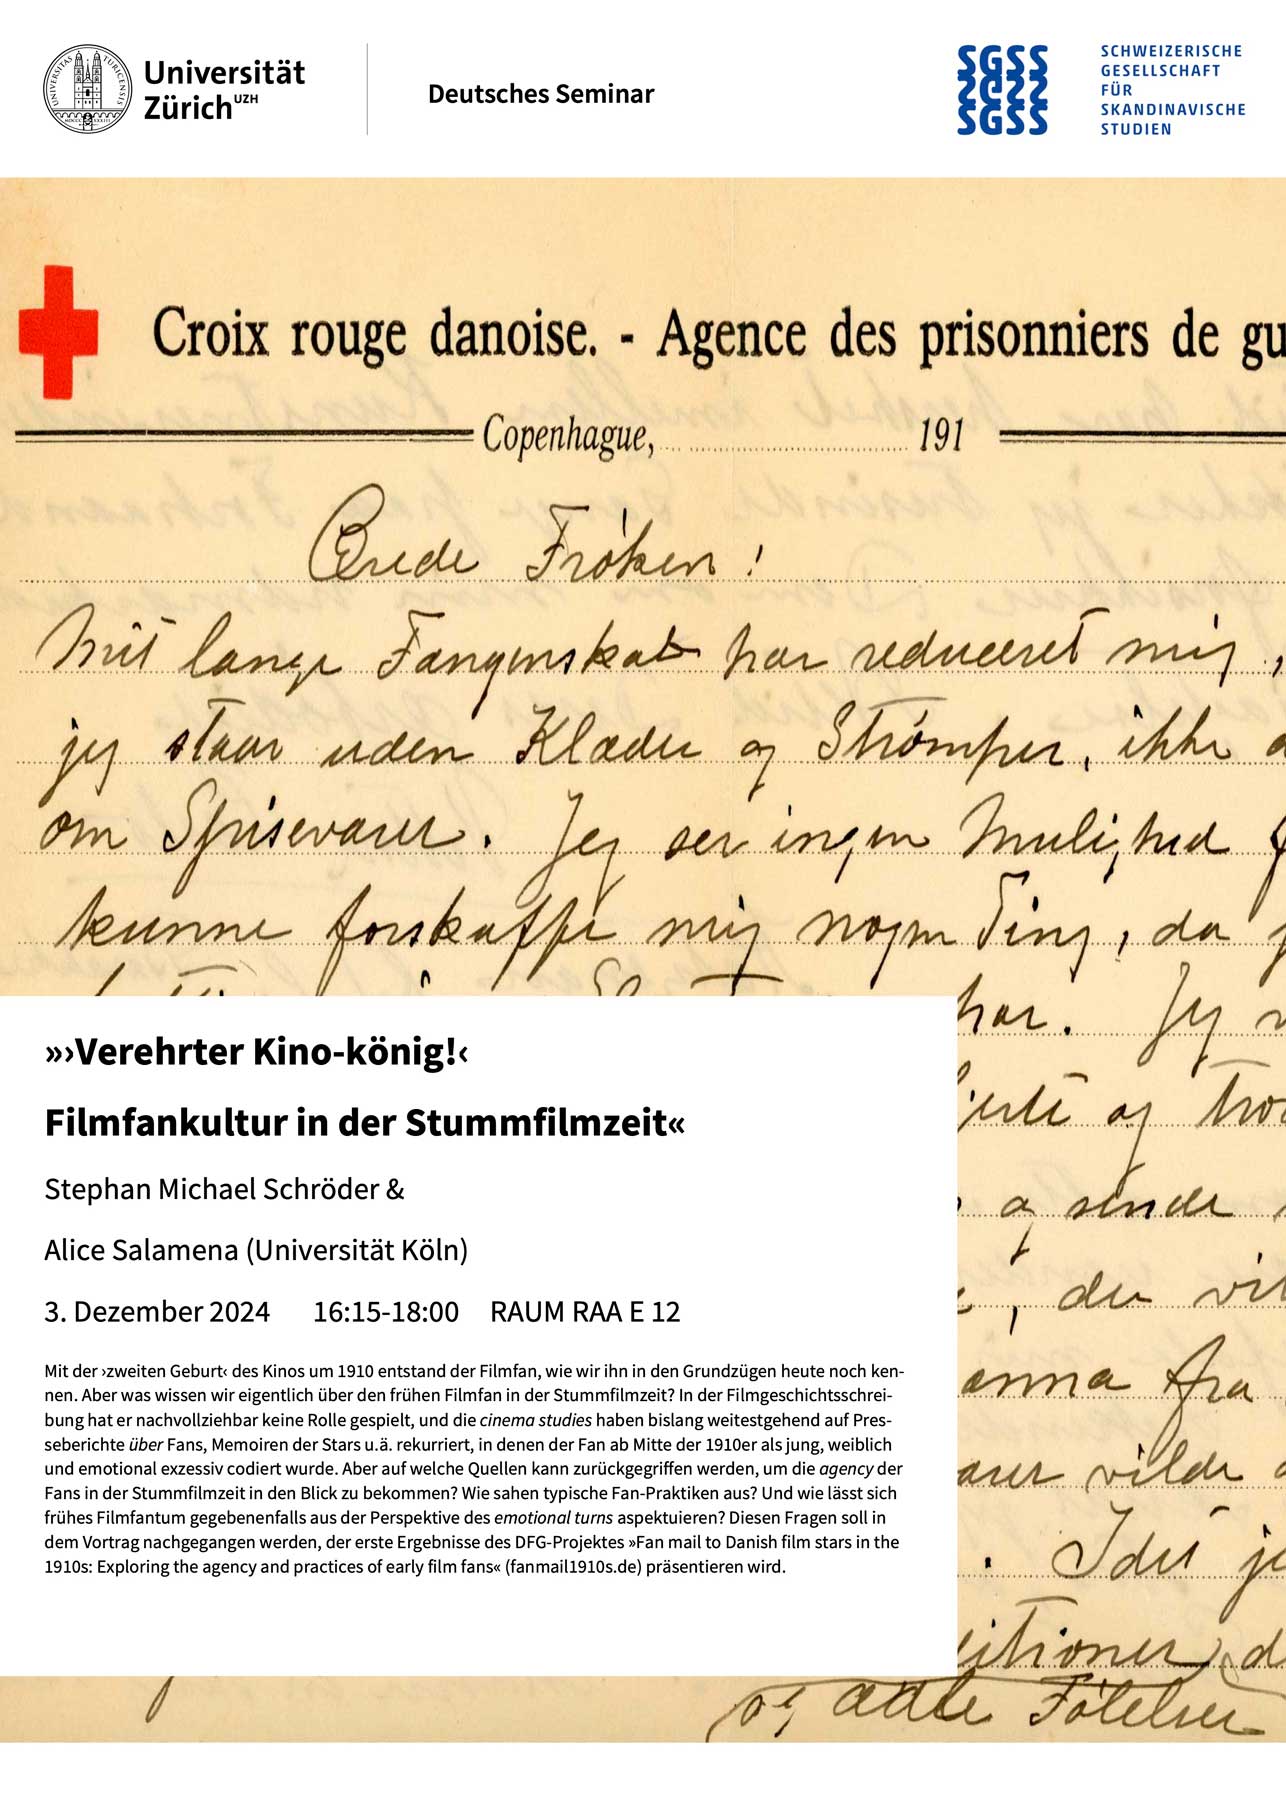 Universität
Zürich UZH
Deutsches Seminar
SGSS
SGSS
SGSS
SCHWEIZERISCHE
GESELLSCHAFT
FÜR
SKANDINAVISCHE
STUDIEN
Croix rouge danoise. - Agence des prisonniers de gu
Copenhague, 191
Ærede Frøken!
Mit lange Fangenskab har reduceret mig,
jeg staar uden Klæder og Strømper, ikke
om Spisevarer. Jeg ser ingen Mulighed
kunne forskaffe mig nogen Ting, da
har. Jeg
og
og sende
, der vil
fra
vilde
. Idet
og ædle Følelser
»›Verehrter Kino-könig!‹
Filmfankultur in der Stummfilmzeit«
Stephan Michael Schröder &
Alice Salamena (Universität Köln)
3. Dezember 2024 16:15-18:00 RAUM RAA E 12
Mit der ›zweiten Geburt‹ des Kinos um 1910 entstand der Filmfan, wie wir ihn in den Grundzügen heute noch ken-
nen. Aber was wissen wir eigentlich über den frühen Filmfan in der Stummfilmzeit? In der Filmgeschichtsschrei-
bung hat er nachvollziehbar keine Rolle gespielt, und die cinema studies haben bislang weitestgehend auf Pres-
seberichte über Fans, Memoiren der Stars u.ä. rekurriert, in denen der Fan ab Mitte der 1910er als jung, weiblich
und emotional exzessiv codiert wurde. Aber auf welche Quellen kann zurückgegriffen werden, um die agency der
Fans in der Stummfilmzeit in den Blick zu bekommen? Wie sahen typische Fan-Praktiken aus? Und wie lässt sich
frühes Filmfantum gegebenenfalls aus der Perspektive des emotional turns aspektuieren? Diesen Fragen soll in
dem Vortrag nachgegangen werden, der erste Ergebnisse des DFG-Projektes »Fan mail to Danish film stars in the
1910s: Exploring the agency and practices of early film fans« (fanmail1910s.de) präsentieren wird.